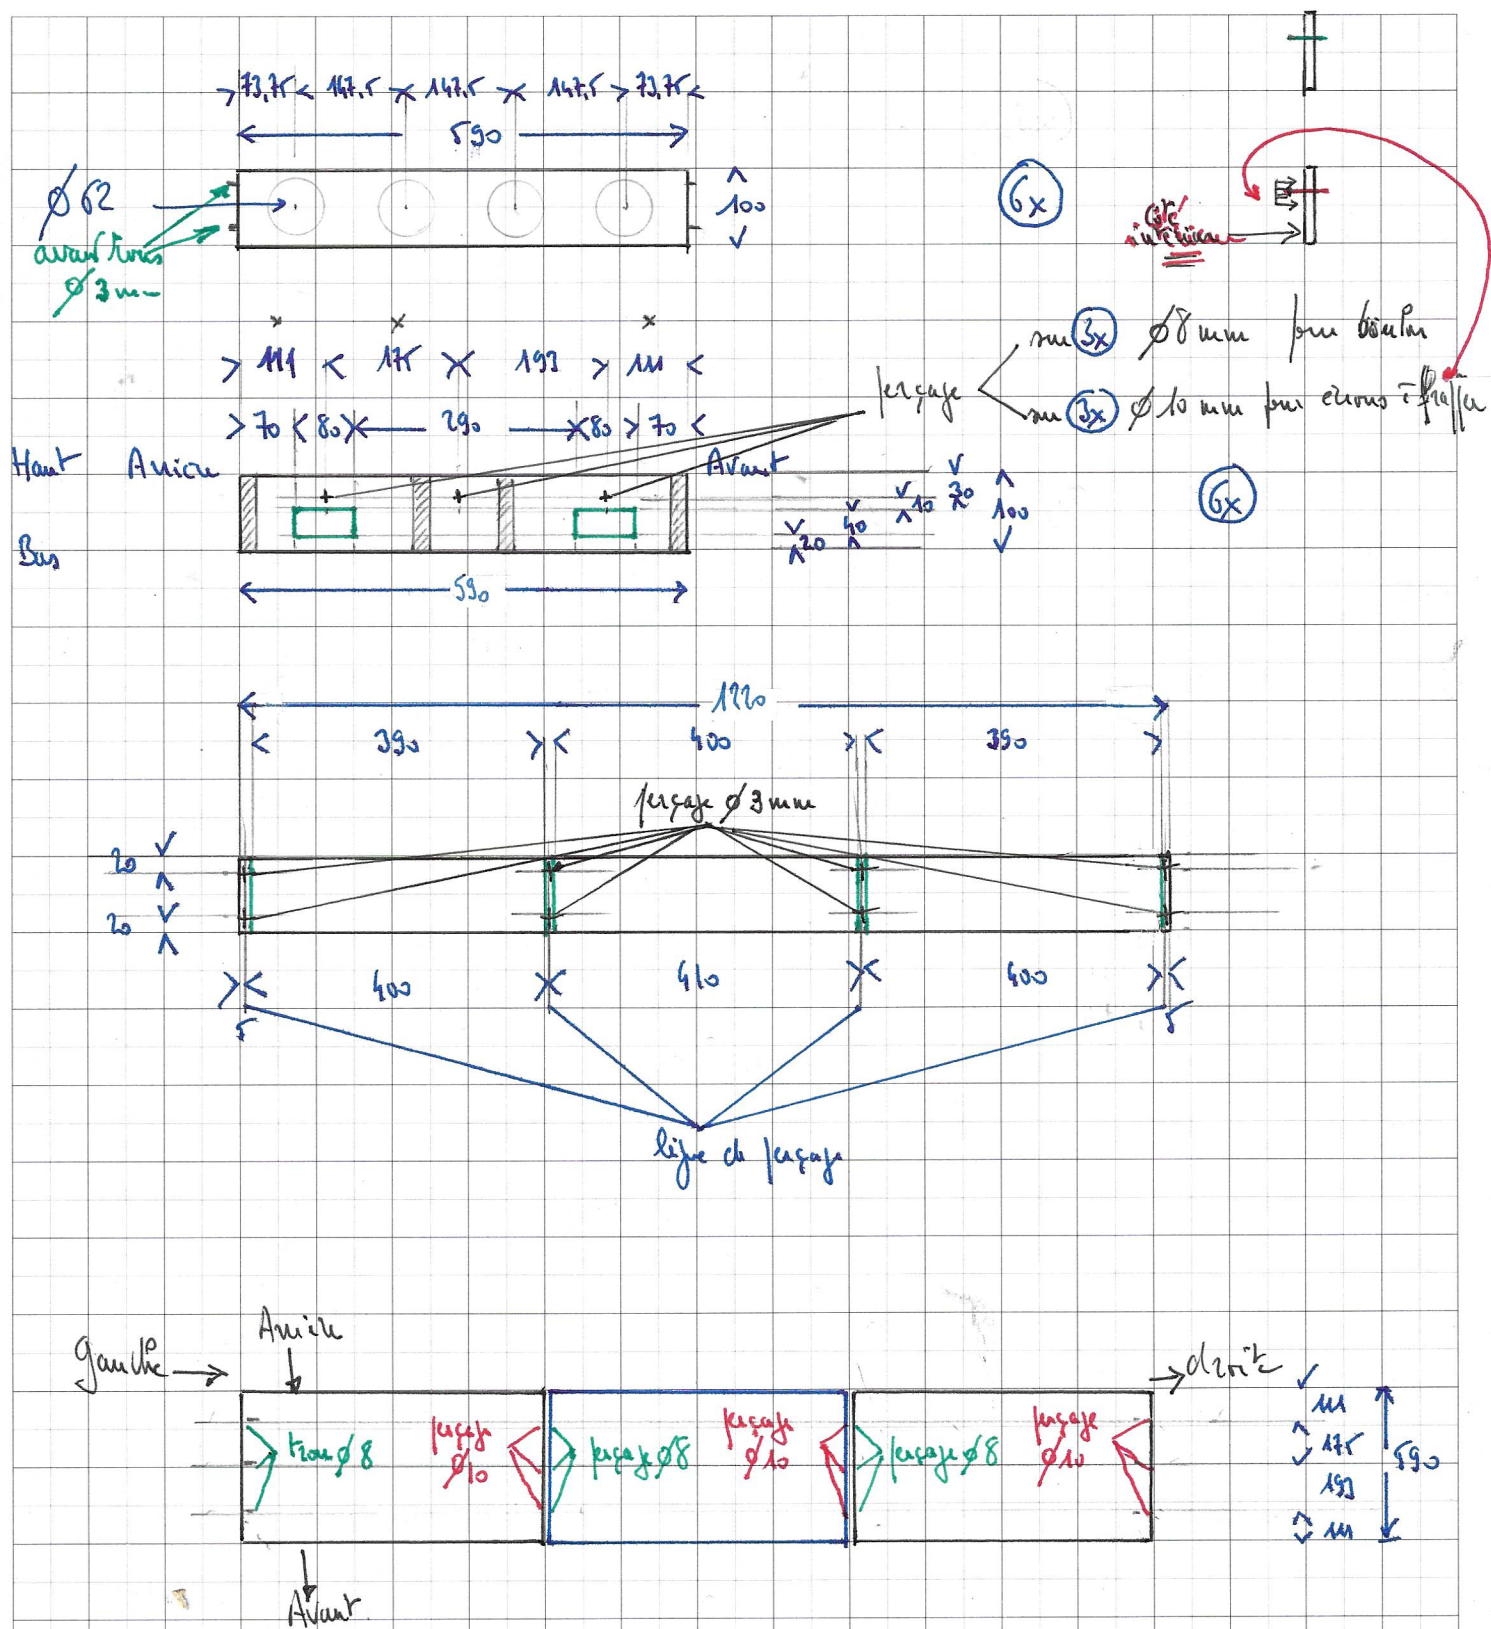 73,75 147,5 147,5 147,5 73,75
590
Ø 62
100
6x
avant trous
Ø 3 mm
côté
intérieur
111 175 193 111
70 80 290 80 70
perçage
sur 3x Ø 8 mm pour boulon
sur 3x Ø 10 mm pour écrous à frapper
Haut Arrière Avant
30
10
40
20
100
6x
Bas
590
1220
390 400 390
perçage Ø 3 mm
20
20
400 410 400
5 5
ligne de perçage
Arrière
gauche
droite
trou Ø 8
perçage
Ø10
perçage Ø8
perçage
Ø10
perçage Ø8
perçage
Ø10
111
175
193
111
590
Avant